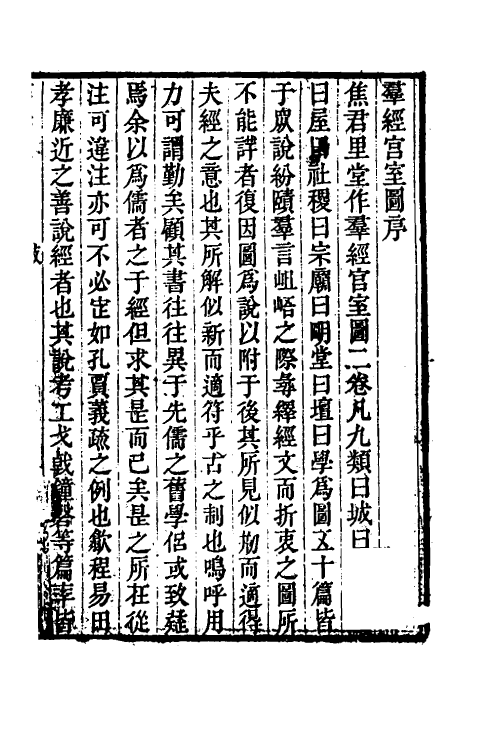 羣經宫室圖序
焦君里堂作羣經宫室圖二卷凡九類曰城曰
曰屋曰社稷曰宗廟曰明堂曰壇曰學為圖五十篇皆
于眾說紛賾羣言岨峿之際尋繹經文而折衷之圖所
不能詳者復因圖為說以附于後其所見似剏而適得
夫經之意也其所解似新而適符乎古之制也嗚呼用
力可謂勤矣顧其書往往異于先儒之舊學侣或致疑
焉余以為儒者之于經但求其是而已矣是之所在從
注可違注亦可不必定如孔賈義疏之例也歙程易田
孝廉近之善說經者也其說考工戈戟鐘磬等篇率皆